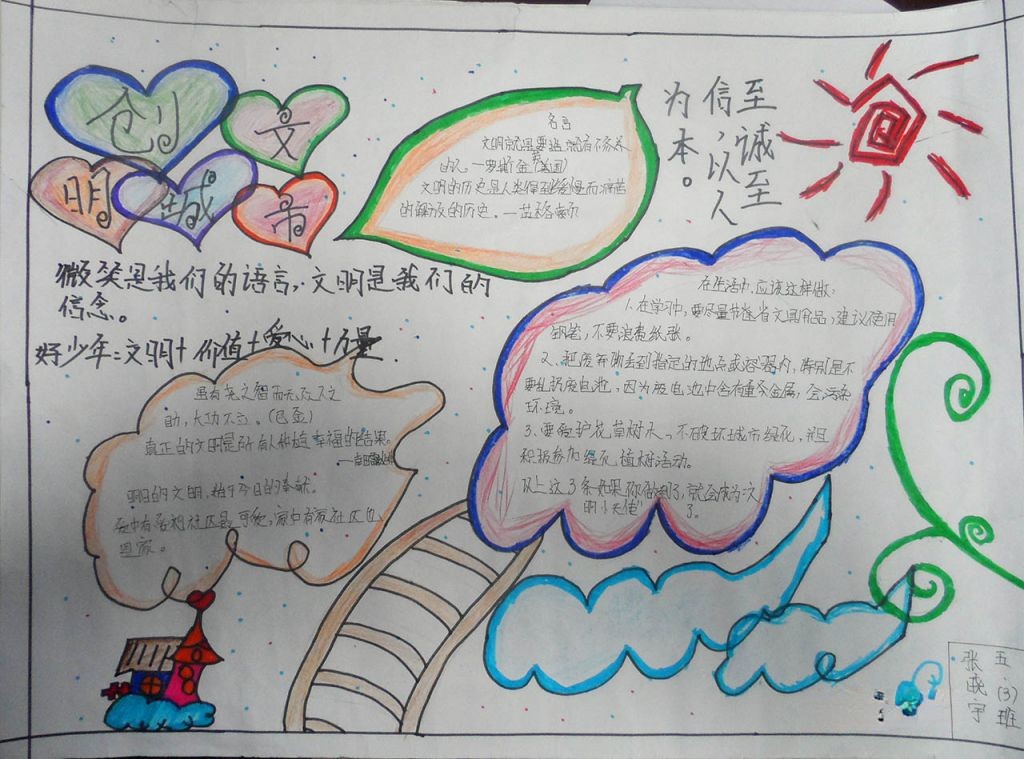 创文
明城市
微笑是我们的语言，文明是我们的
信念。
好少年：文明＋价值＋爱心＋力量
名言
文明就是要造就有修养
的人。—罗斯金（英国）
文明的历史是人类得到缓慢而痛苦
的解放的历史。—
至诚至
信，以人
为本。
虽有尧之智而无众人之
助，大功不立。
真正的文明是所有人种植幸福的结果。
明日的文明，始于今日的奉献。
在生活中，应该这样做：
1.在学习中，要尽量节省文具用品，建议使用
钢笔，不要浪费纸张。
2、把废弃物丢到指定的地点或容器内，特别是不
要乱扔废电池，因为废电池中含有重金属，会污染
环境。
3、要爱护花草树木，不破坏城市绿化，并且
积极参加绿化植树活动。
以上这3条如果你做到了，就会成为文
明小天使了。
五.(3)班
张晓宇